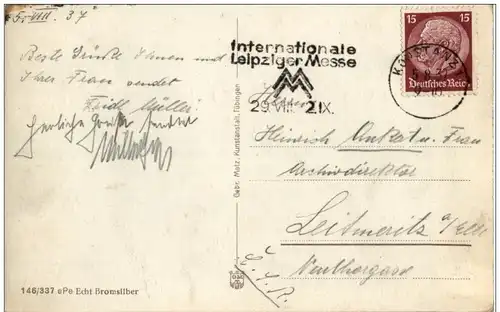 5. VIII. 37
Beste Grüße Ihnen und
Ihrer Frau sendet
Herzliche Grüße sendet
Gebr. Metz, Kunstanstalt, Tübingen
Internationale
Leipziger Messe
29.VIII. 2.IX.
15 15
Deutsches Reich
KONSTANZ
Herrn
Heinrich Ankert u. Frau
Archivdirektor
Leitmeritz a/Elbe
Č. S. R.
146/337 ePe Echt Bromsilber